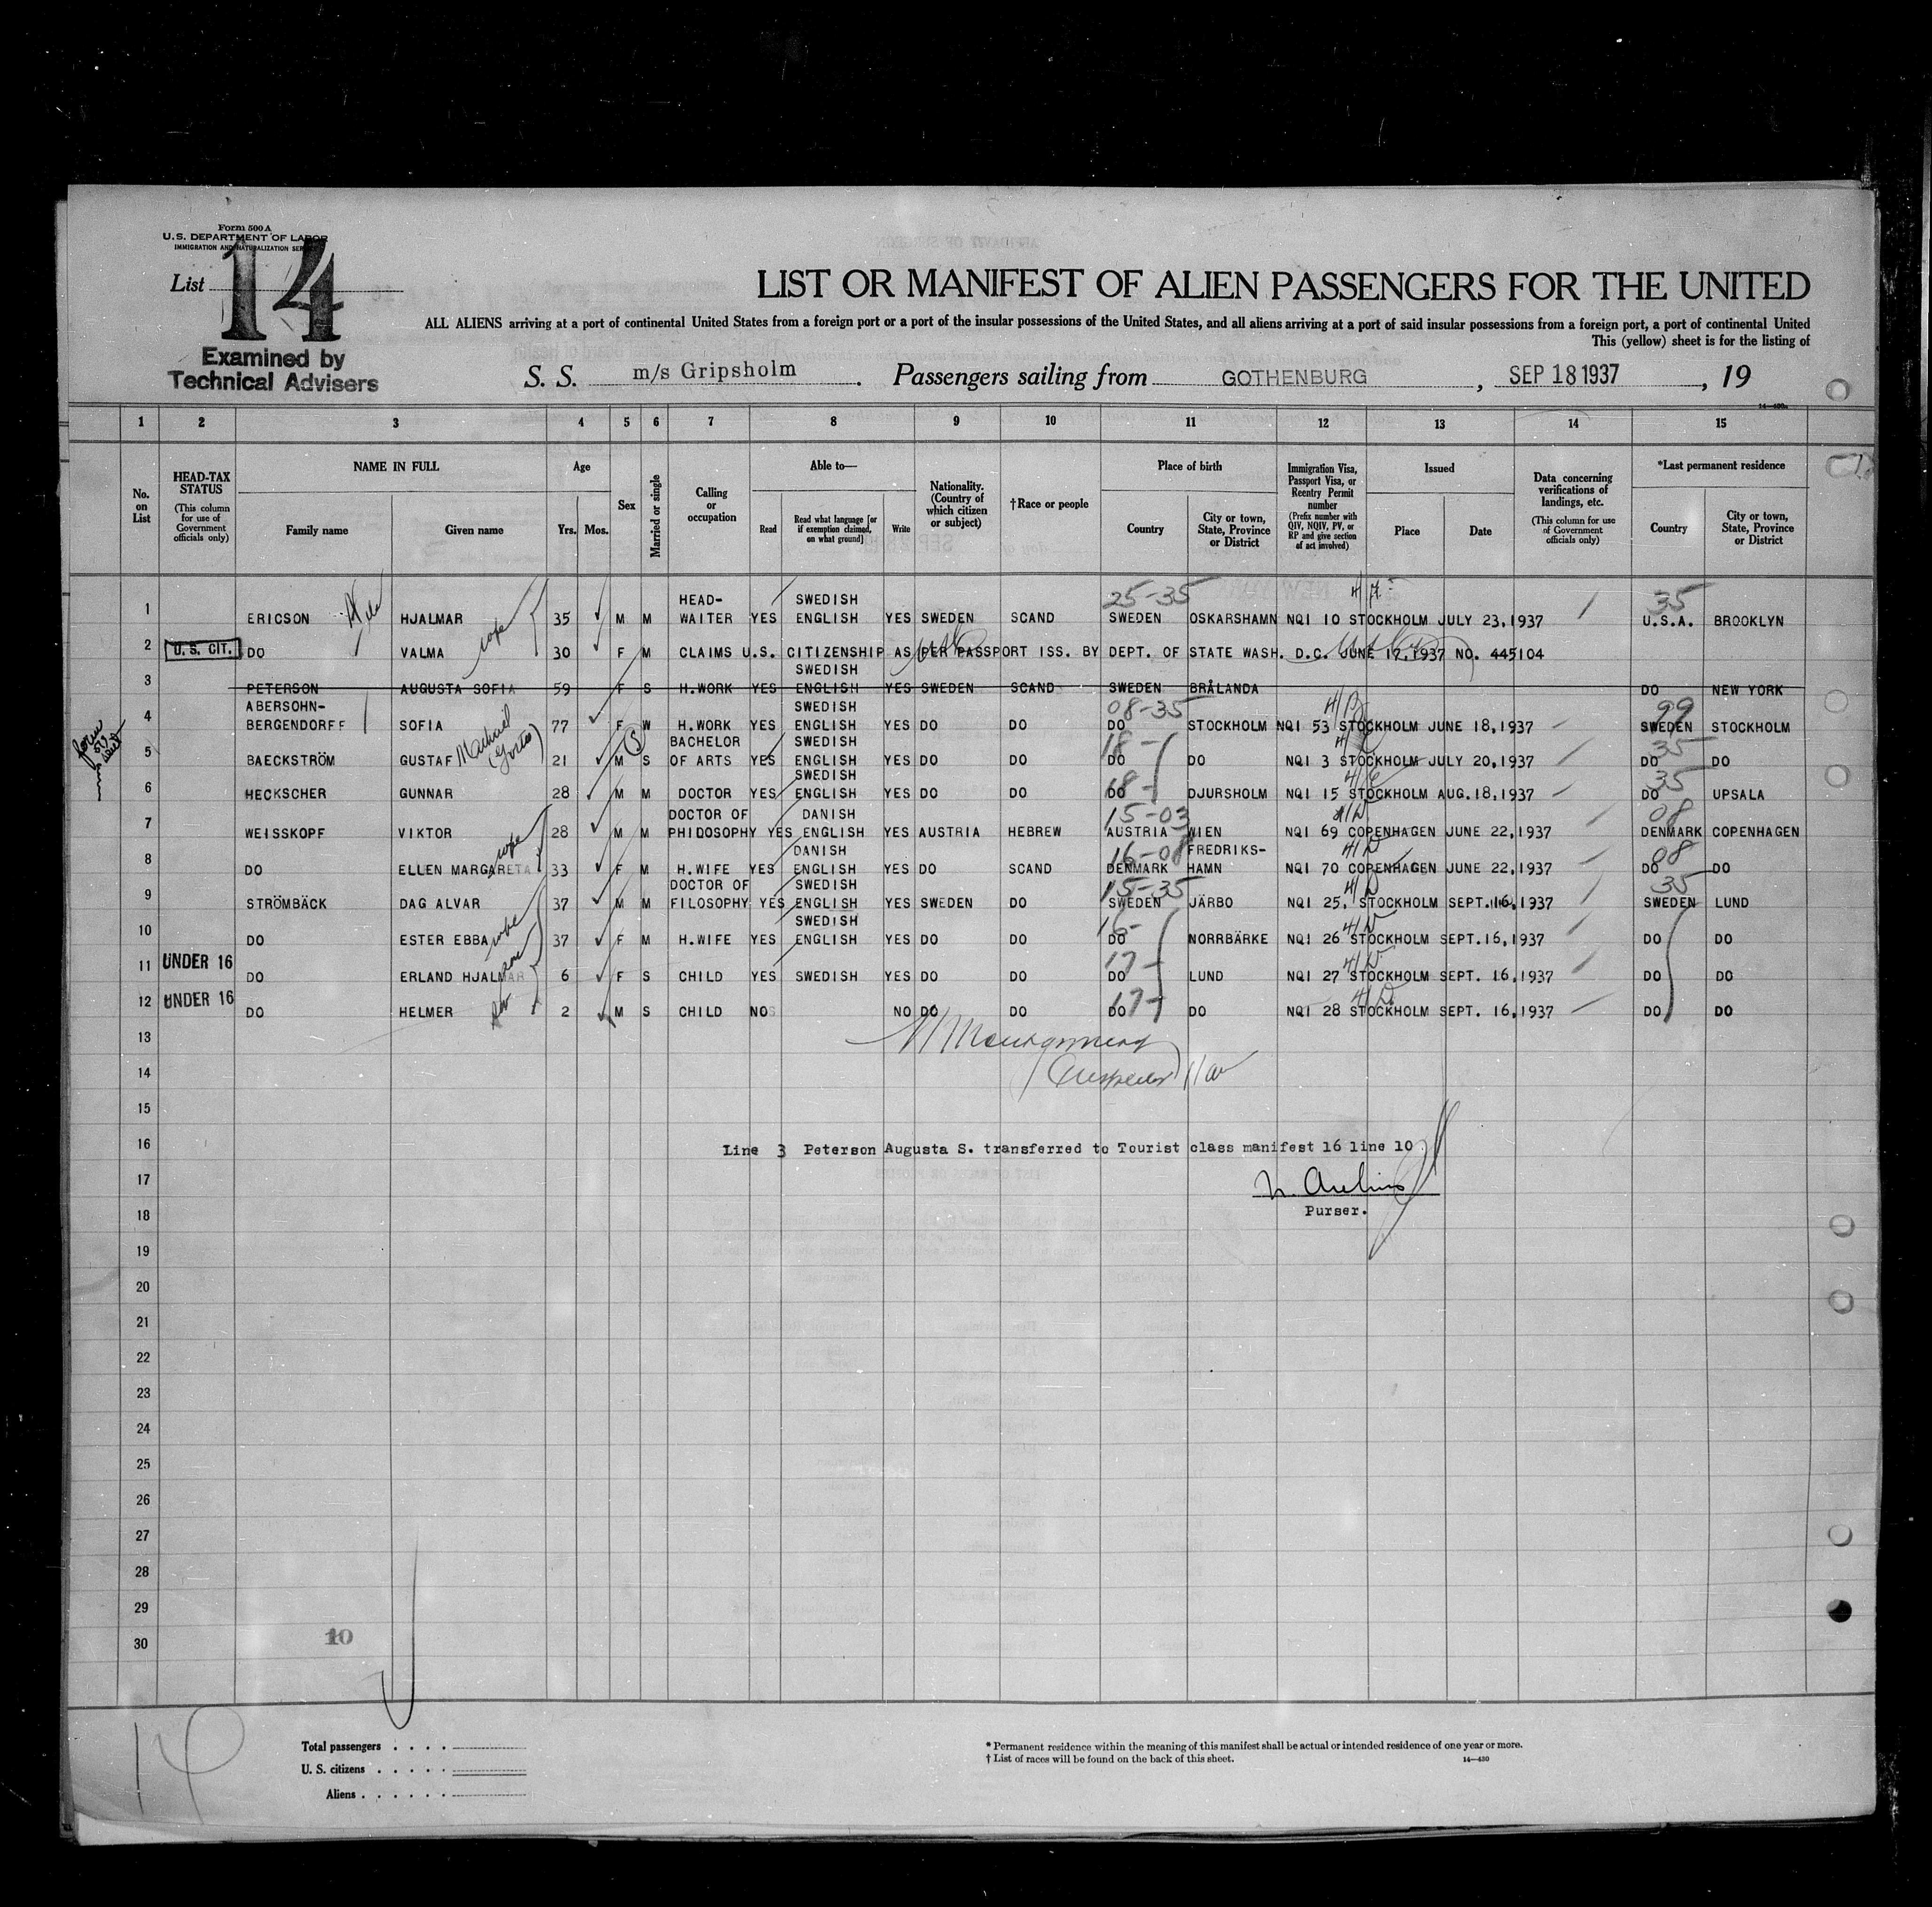 Form 500 A
U.S. DEPARTMENT OF LABOR
IMMIGRATION AND NATURALIZATION SERVICE
List 14
Examined by
Technical Advisers
LIST OR MANIFEST OF ALIEN PASSENGERS FOR THE UNITED
ALL ALIENS arriving at a port of continental United States from a foreign port or a port of the insular possessions of the United States, and all aliens arriving at a port of said insular possessions from a foreign port, a port of continental United
This (yellow) sheet is for the listing of
S. S. m/s Gripsholm. Passengers sailing from GOTHENBURG, SEP 18 1937, 19
14—430a
1 2 3 4 5 6 7 8 9 10 11 12 13 14 15
No. on List
HEAD-TAX STATUS
(This column for use of Government officials only)
NAME IN FULL
Family name Given name
Age
Yrs. Mos.
Sex
Married or single
Calling or occupation
Able to—
Read Read what language [or if exemption claimed, on what ground] Write
Nationality. (Country of which citizen or subject)
†Race or people
Place of birth
Country City or town, State, Province or District
Immigration Visa, Passport Visa, or Reentry Permit number
(Prefix number with QIV, NQIV, PV, or RP and give section of act involved)
Issued
Place Date
Data concerning verifications of landings, etc.
(This column for use of Government officials only)
*Last permanent residence
Country City or town, State, Province or District
HEAD- SWEDISH 25-35 35
1 ERICSON HJALMAR 35 M M WAITER YES ENGLISH YES SWEDEN SCAND SWEDEN OSKARSHAMN NQI 10 STOCKHOLM JULY 23,1937 U.S.A. BROOKLYN
2 U.S. CIT. DO VALMA wife 30 F M CLAIMS U.S. CITIZENSHIP AS PER PASSPORT ISS. BY DEPT. OF STATE WASH. D.C. JUNE 17,1937 NO. 445104
SWEDISH
3 PETERSON AUGUSTA SOFIA 59 F S H.WORK YES ENGLISH YES SWEDEN SCAND SWEDEN BRÅLANDA DO NEW YORK
ABERSOHN- SWEDISH 08-35 99
4 BERGENDORFF SOFIA 77 F W H.WORK YES ENGLISH YES DO DO DO STOCKHOLM NQI 53 STOCKHOLM JUNE 18,1937 SWEDEN STOCKHOLM
BACHELOR SWEDISH 18- 35
5 BAECKSTRÖM GUSTAF 21 M S OF ARTS YES ENGLISH YES DO DO DO DO NQI 3 STOCKHOLM JULY 20,1937 DO DO
SWEDISH 18- 35
6 HECKSCHER GUNNAR 28 M M DOCTOR YES ENGLISH YES DO DO DO DJURSHOLM NQI 15 STOCKHOLM AUG.18,1937 DO UPSALA
DOCTOR OF DANISH 15-03 08
7 WEISSKOPF VIKTOR 28 M M PHIDOSOPHY YES ENGLISH YES AUSTRIA HEBREW AUSTRIA WIEN NQI 69 COPENHAGEN JUNE 22,1937 DENMARK COPENHAGEN
DANISH 16-08 FREDRIKS- 08
8 DO ELLEN MARGARETA wife 33 F M H.WIFE YES ENGLISH YES DO SCAND DENMARK HAMN NQI 70 COPENHAGEN JUNE 22,1937 DO DO
DOCTOR OF SWEDISH 15-35 35
9 STRÖMBÄCK DAG ALVAR 37 M M FILOSOPHY YES ENGLISH YES SWEDEN DO SWEDEN JÄRBO NQI 25, STOCKHOLM SEPT.16,1937 SWEDEN LUND
SWEDISH 16-
10 DO ESTER EBBA wife 37 F M H.WIFE YES ENGLISH YES DO DO DO NORRBÄRKE NQI 26 STOCKHOLM SEPT.16,1937 DO DO
17-
11 UNDER 16 DO ERLAND HJALMAR son 6 F S CHILD YES SWEDISH YES DO DO DO LUND NQI 27 STOCKHOLM SEPT. 16,1937 DO DO
17-
12 UNDER 16 DO HELMER 2 M S CHILD NO NO DO DO DO DO NQI 28 STOCKHOLM SEPT. 16,1937 DO DO
13
14
15
16 Line 3 Peterson Augusta S. transferred to Tourist class manifest 16 line 10
17
18 Purser.
19
20
21
22
23
24
25
26
27
28
29
30
10
14
Total passengers . . . .
U. S. citizens . . . . .
Aliens . . . . . .
* Permanent residence within the meaning of this manifest shall be actual or intended residence of one year or more.
† List of races will be found on the back of this sheet. 14—430